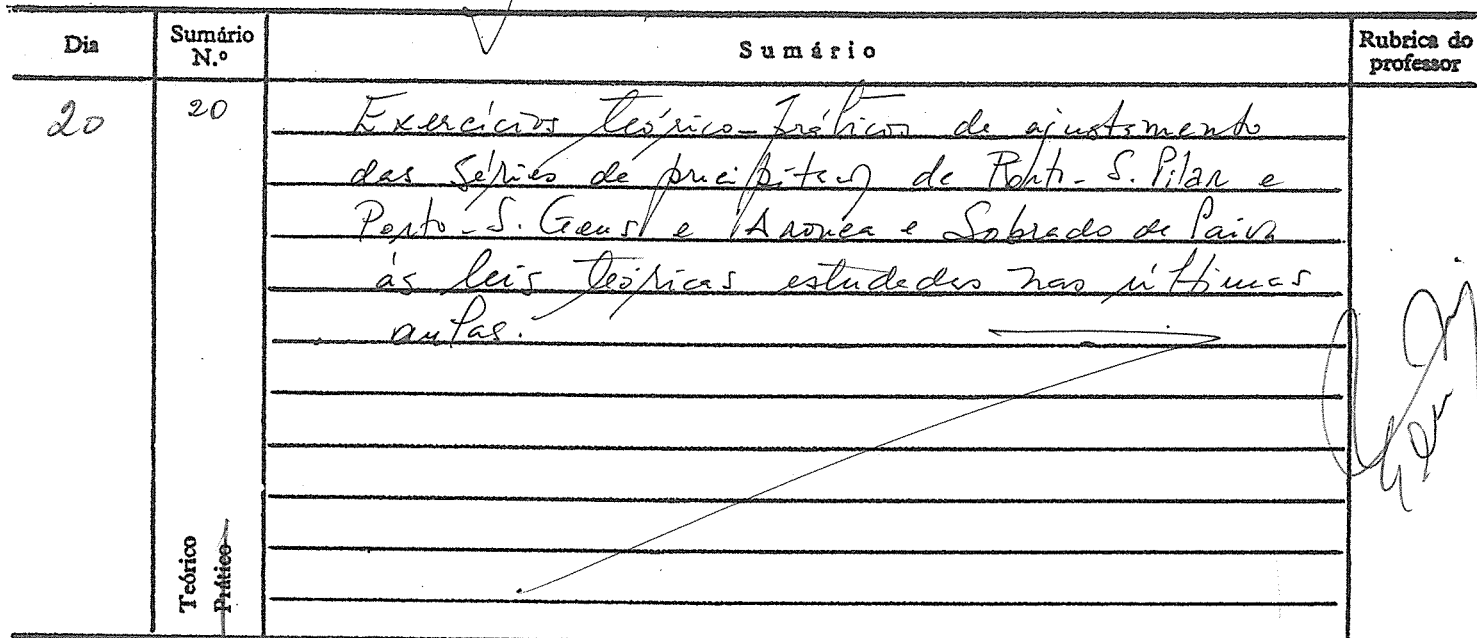 Dia
Sumário N.º
Sumário
Rubrica do professor
20
20
Exercícios teórico-práticos de ajustamento
das séries de precipitação de Porto-S. Pilar e
Porto-S. Gens e Arouca e Sobrado de Paiva
às leis teóricas estudadas nas últimas
aulas.
Teórico
Prático